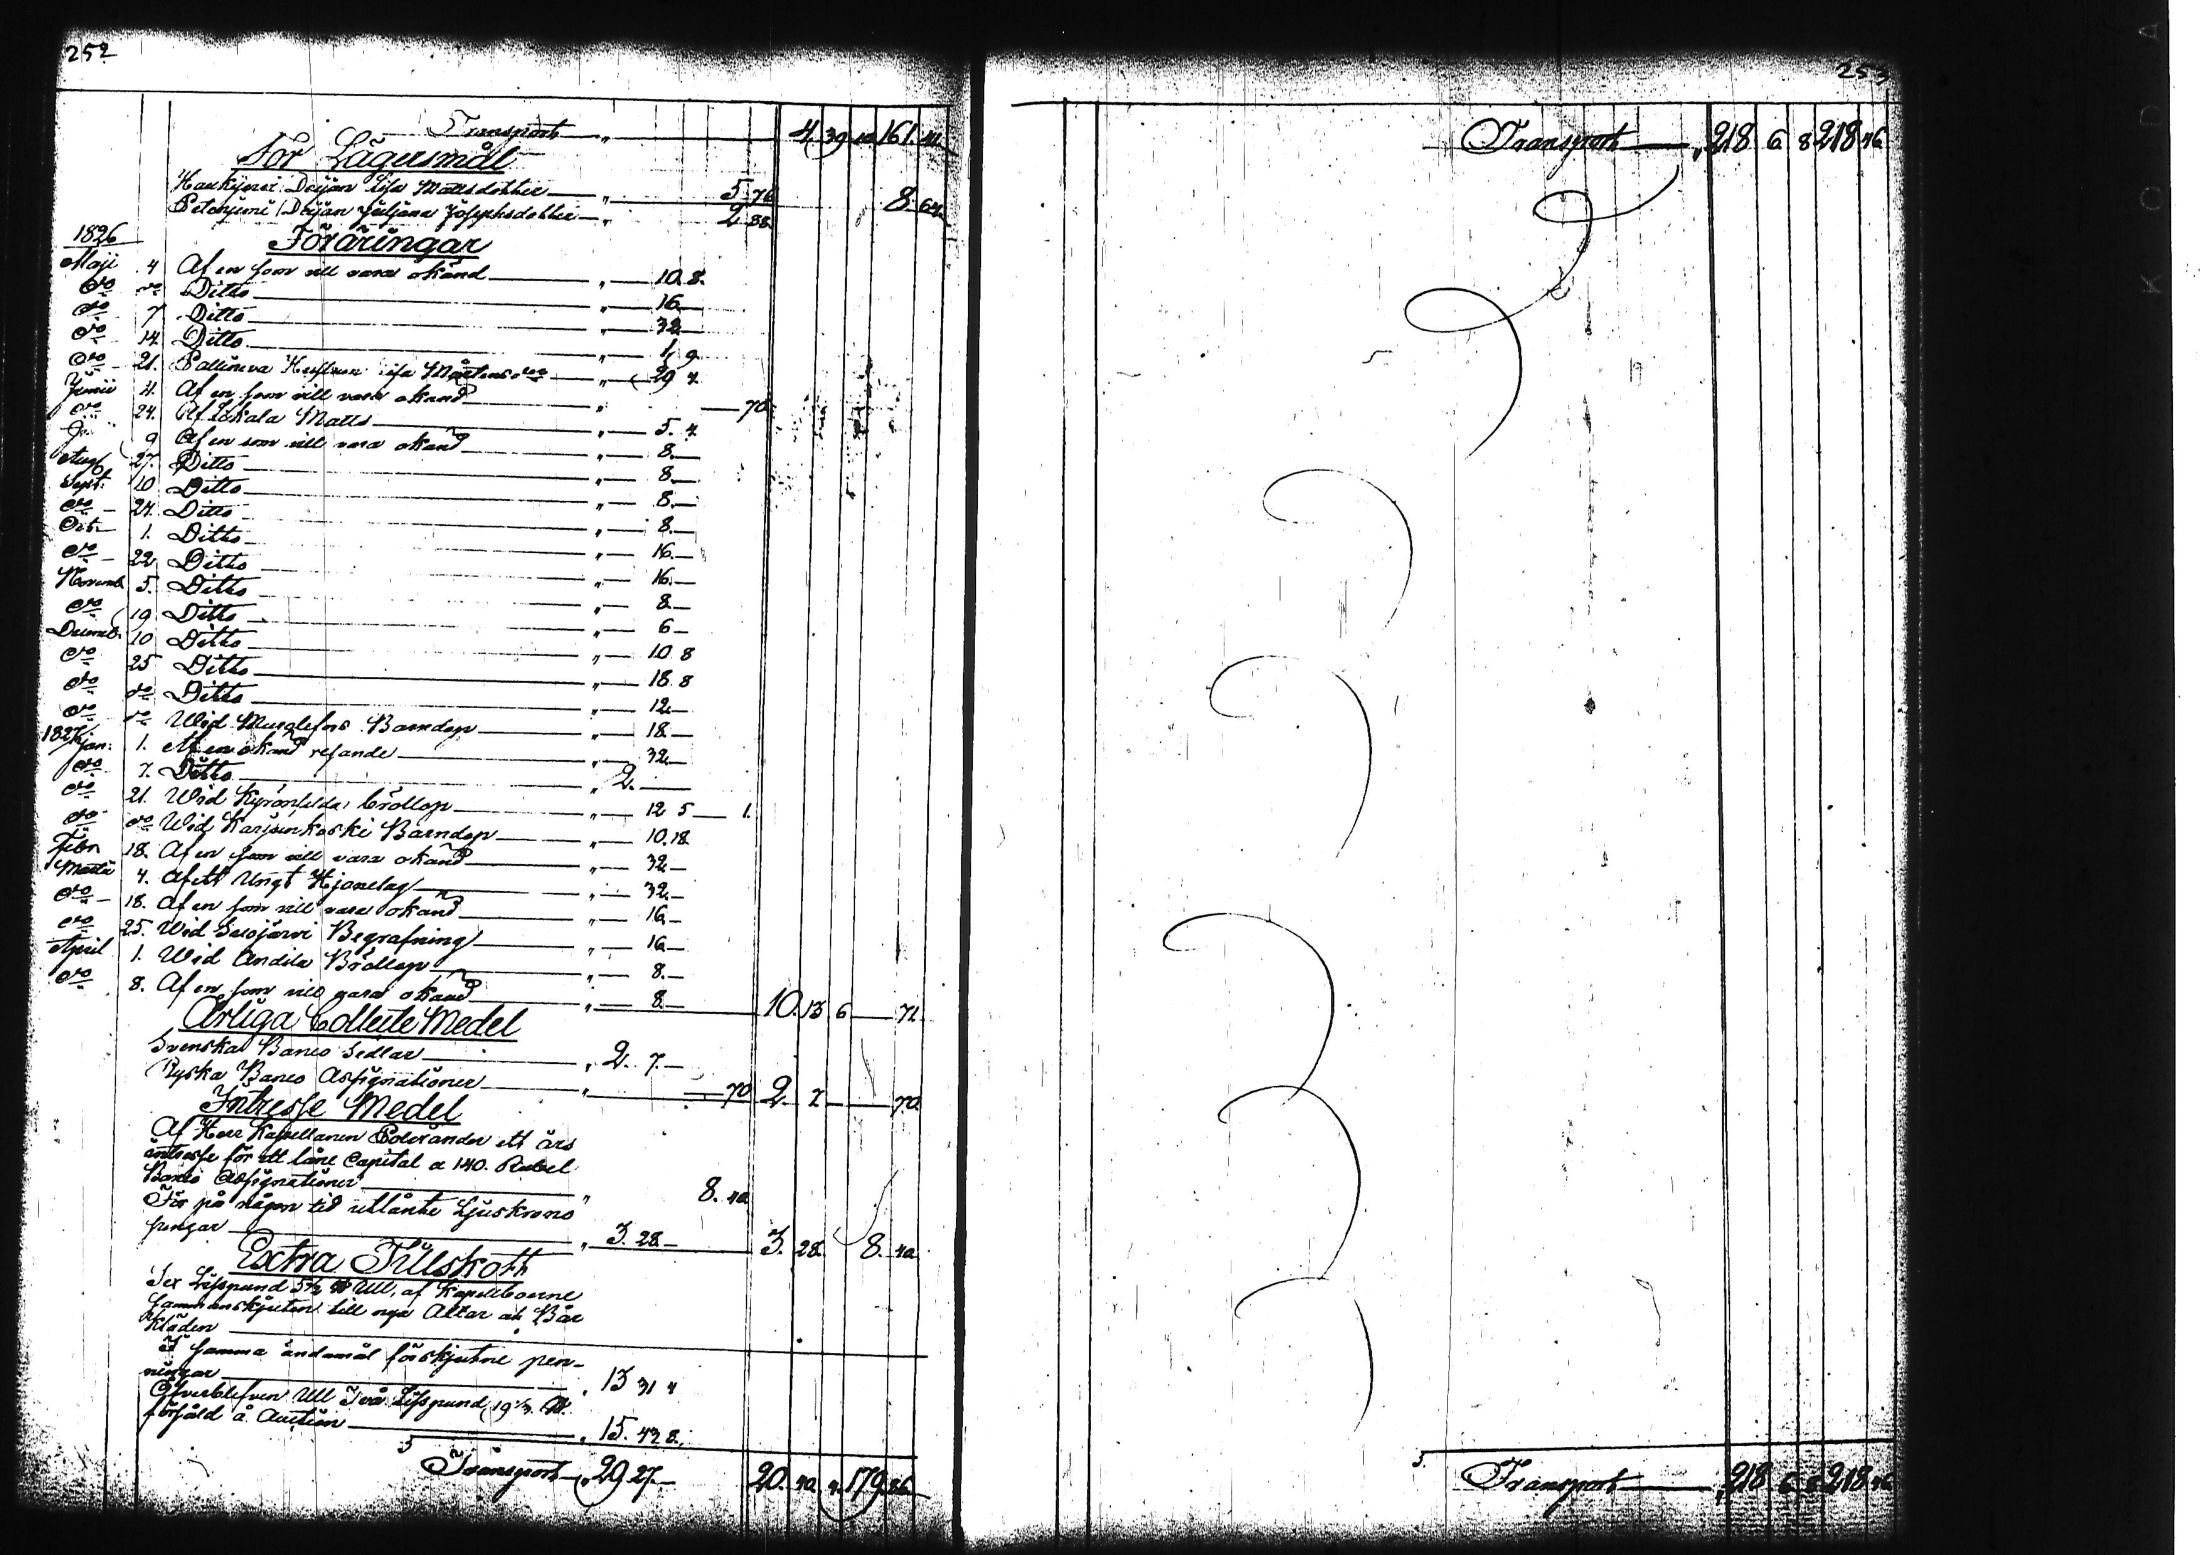 252
Transport " 4. 39 10 161. 41.
För Lägersmål
Haukijervi Drijan Lisa Mattsdotter " 5. 76
Petenjemi Drijan Juljana Josephsdotter " 2. 88 8. 64.
1826 Föräringar
Maji 4 Af en som vill vara okänd " 10. 8.
do do Ditto " 16.
do 7 Ditto 32
do 14 Ditto " 1. 9
do 21. Mårtensdr " 29 4.
Junii 4. Af en som vill vara okänd " 70.
do 24. Af Matts " 5. 4.
9 Af en som vill vara okänd " 8.
Aug 27. Ditto " 8.
Sept. 10 Ditto " 8.
do 24. Ditto " 8.
Octr 1. Ditto " 16.
do 22 Ditto " 16.
Novemb 5. Ditto " 8.
do 19 Ditto " 6
Decemb. 10 Ditto " 10 8
do 25 Ditto " 18. 8
do do Ditto " 12
do do Wid Barndop " 18.
1827 Jan. 1. Af en okänd resande " 32
do 7. Ditto " 2.
do 21. Wid Bröllop " 12 5 1.
do do Wid Karjunkoski Barndop " 10. 18.
Febr 18. Af en som vill vara okänd " 32
Martii 4. Af ett Ungt Hjonelag " 32.
do 18. Af en som vill vara okänd " 16
do 25. Wid Suojärvi Begrafning " 16
April 1. Wid Andila Bröllop " 8.
do 8. Af en som vill vara okänd " 8. 10. 13 6 71.
Årliga Collecte Medel
Svenska Banco Sedlar " 2. 7.
Ryska Banco Assignationer " 70 2. 7. 70.
Intresse Medel
Af Herr Kapellanen Polviander ett års
intresse för ett låne Capital a 140. Rubel
Banco Assignationer " 8. 40
För på någon tid utlånte Ljuskrono
pengar " 3. 28. 3. 28. 8. 40
Extra Tillskott
Sex Lispund 5½ ℔ Ull, af Kapellboerne
sammanskjuten till nya Altar och Bår
Kläden
I samma ändamål förskjutne pen-
ningar " 13 31 4
Öfverblefven Ull Två Lispund 19½ ℔.
försåld å Auction " 15. 43 8.
Transport " 29 27. 20. 40 4. 179. 86
253
Transport " 218 6 8 218 46
Transport " 218 6 8 218 46